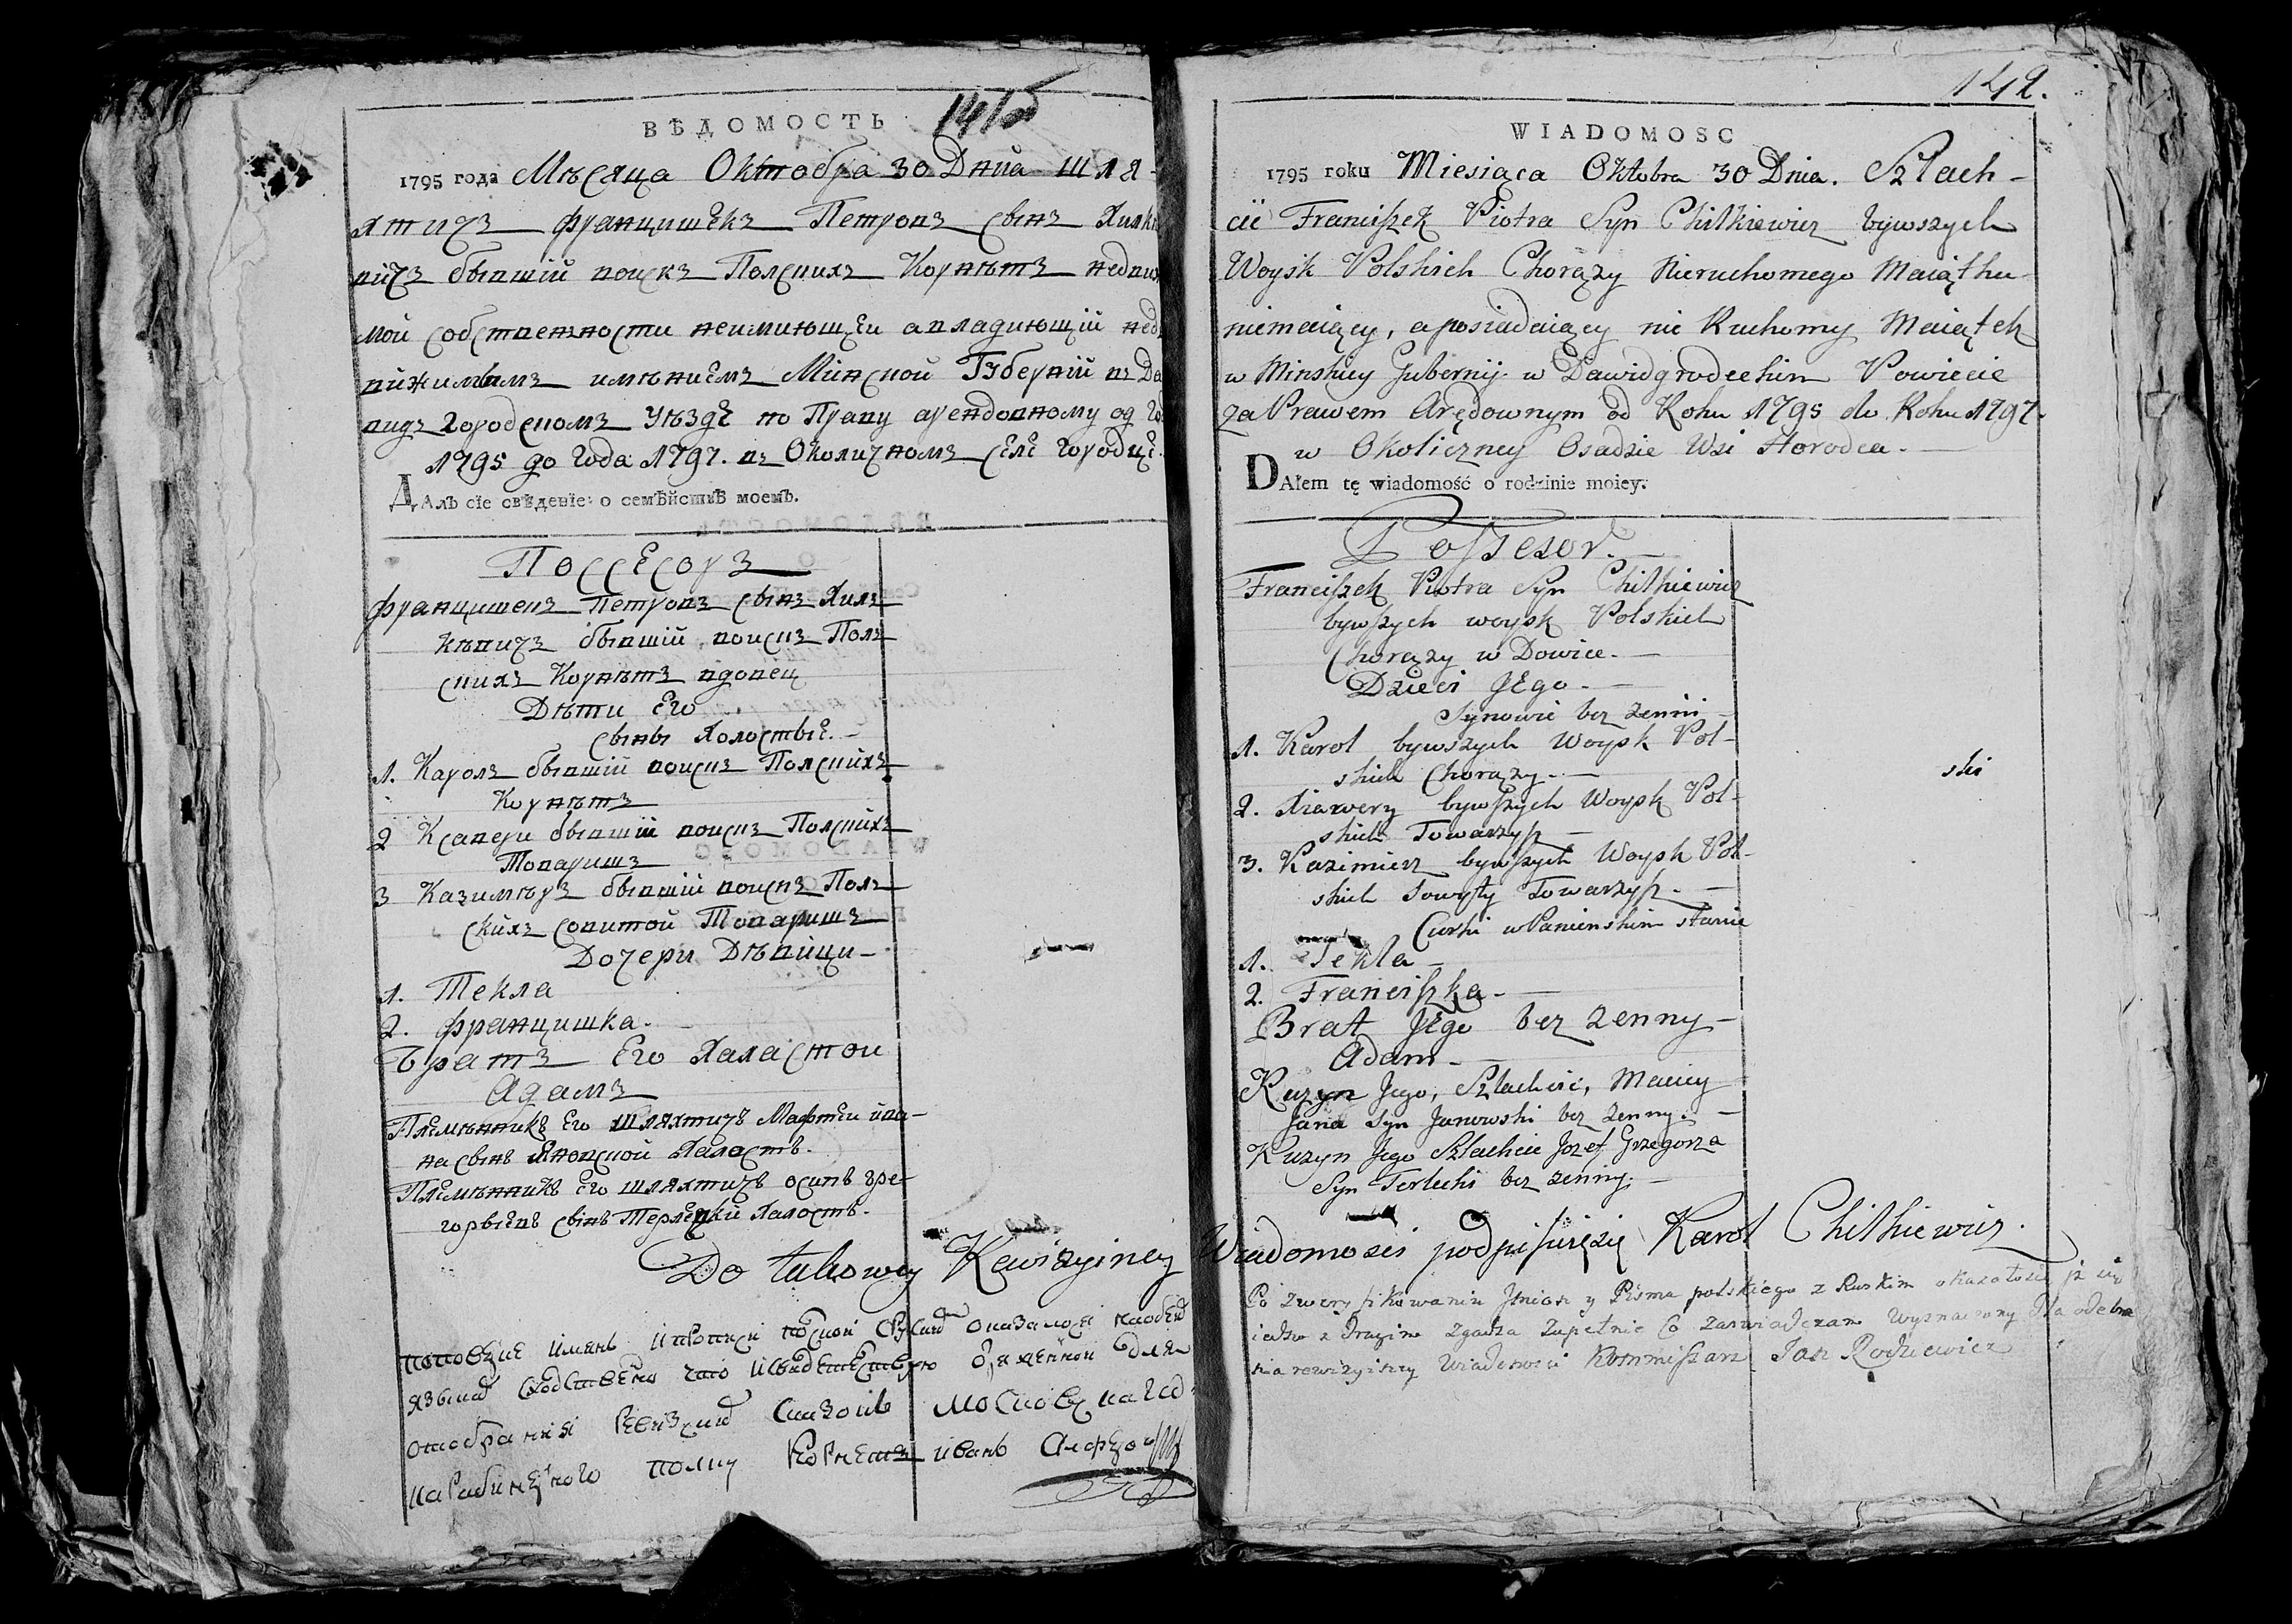 ВѢДОМОСТЬ
1795 года Мѣсяца Октобра 30 Дниа Шля-
хтичъ францишекъ Петровъ сынъ Хилкѣ
вичъ бывшїй войскъ Полскихъ Корнѣтъ недвижи
мой собственности неимиющеи авладиющїй нед
вижимымъ имѣниемъ Минской Губернїй въ Да
видъ городскомъ Уѣздѣ по Праву арендовному од го
1795 до Года 1797. въ Околичномъ селе городце.
ДАлъ сїе свѣденїе о семѣйствѣ моемъ.
Поссесоръ
францишекъ Петровъ сынъ Хилъ
кѣвичъ бывшїй войскъ Полъ
скихъ Корнѣтъ вдовец
Дѣти Его
сыны Холостые.
1. Каролъ бывшїй войскъ Полскихъ
Корнѣтъ
2 Ксавери бывшїй войскъ Полскихъ
Товаришъ
3 Казимѣръ бывшїй войскъ Полъ
скихъ совитой Товаришъ
Дочери Дѣвици
1. Текла
2. францишка.
Братъ Его Халастои
Адамъ
Племѣнникъ Его шляхтичъ Мафтеи ива-
на сынъ Яновской Халостъ.
Племѣнникъ Его шляхтичъ осипъ гре-
горьевъ сынъ Терлецки Халостъ.
Do takowey Rewizyiney Wiadomosci podpisuię się Karol Chilkiewicz.
языка сходственно что и свидетелствую
отобрания
карабинернаго полку Корнетъ иванъ
142.
WIADOMOSC
1795 roku Miesiąca Oktobra 30 Dnia. Szlach-
cic Franciszek Piotra Syn Chilkiewicz bywszych
Woysk Polskich Chorąży Nieruchomego Maiątku
niemaiący, a posiadaiący nie Ruchomy Maiątek
w Minskiey Gubernij w Dawidgrodeckim Powiecie
za Prawem Arędownym od Roku 1795 do Roku 1797.
w Okoliczney Osadzie Wsi Horodca.
DAłem tę wiadomość o rodzinie moiey.
Possesor.
Franciszek Piotra Syn Chilkiewicz
bywszych woysk Polskich
Chorąży w Dowice.
Dzieci Jego.
Synowie bez żenni
1. Karol bywszych Woysk Pol-
skich Chorąży.
2. Xiawery bywszych Woysk Pol-
skich Towarzysz
3. Kazimierz bywszych Woysk Pol-
skich Sowity Towarzysz.
Curki w Panienskim stanie
1. Tekla
2. Franciszka.
Brat Jego bez żenny
Adam
Kuzyn Jego, Szlachcic, Maciey
Jana Syn Janowski bez żenny.
Kuzyn Jego Szlachcic Jozef Grzegorza
Syn Terlecki bez żenny.
ski
Po zweryfikowaniu Jmion y Pisma polskiego z Ruskim okazało się iż
iedno z drugim zgadza zupełnie Co zaświadczam Wyznaczony Dla odebra
nia rewizyiney Wiadomosci Kommissarz Jan